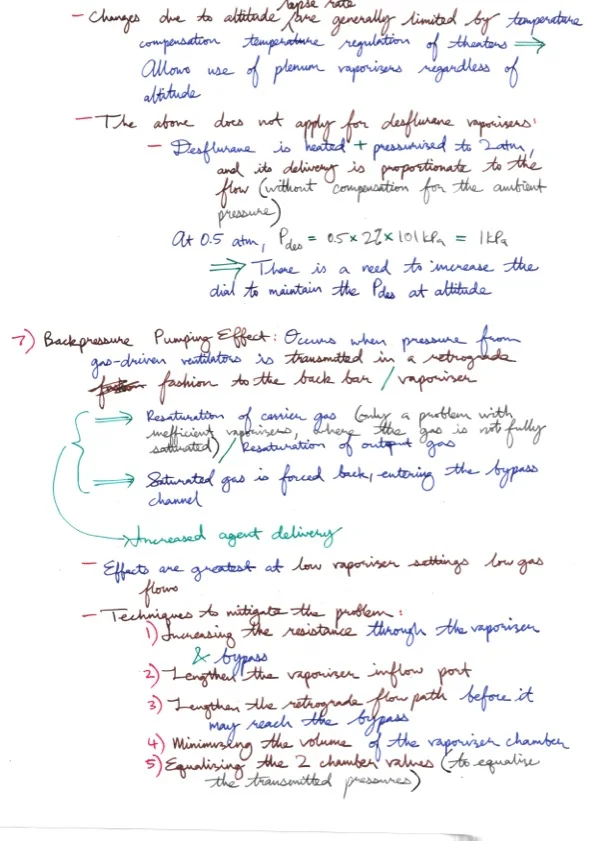 lapse rate
- Changes due to altitude are generally limited by temperature
compensation temperature regulation of theaters ⇒
Allows use of plenum vaporizers regardless of
altitude
- The above does not apply for desflurane vaporisers:
- Desflurane is heated + pressurised to 2atm,
and its delivery is proportionate to the
flow (without compensation for the ambient
pressure)
At 0.5 atm, Pdes = 0.5 × 2% × 101 kPa = 1kPa
⇒ There is a need to increase the
dial to maintain the Pdes at altitude
7) Backpressure Pumping Effect: Occurs when pressure from
gas-driven ventilators is transmitted in a retrograde
fashion to the back bar / vaporiser
⇒ Resaturation of carrier gas (only a problem with
inefficient vaporisers, where the gas is not fully
saturated) / Resaturation of output gas
⇒ Saturated gas is forced back, entering the bypass
channel
→ Increased agent delivery
- Effects are greatest at low vaporiser settings low gas
flows
- Techniques to mitigate the problem:
1) Increasing the resistance through the vaporizer
& bypass
2) Lengthen the vaporizer inflow port
3) Lengthen the retrograde flow path before it
may reach the bypass
4) Minimizing the volume of the vaporizer chamber
5) Equalizing the 2 chamber values (to equalise
the transmitted pressures)